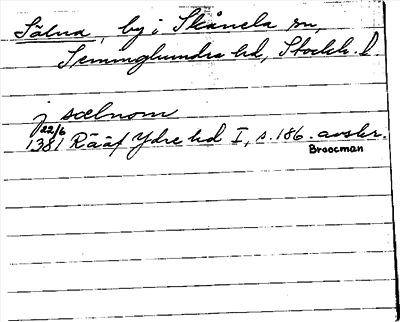 Sälna, by i Skånela sn,
Semminghundra hd, Stockh. l.
j sælnom
22/6
1381 Rääf Ydre hd I, s. 186. avskr.
Broocman